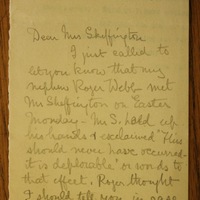 Dear Mrs Skeffington
I just called to
let you know that my
nephew Roger Webb met
Mr Skeffington on Easter
Monday - Mr S. held up
his hands & exclaimed "This
should never have occurred -
it is deplorable" or words to
that effect. Roger thought
I should tell you in case